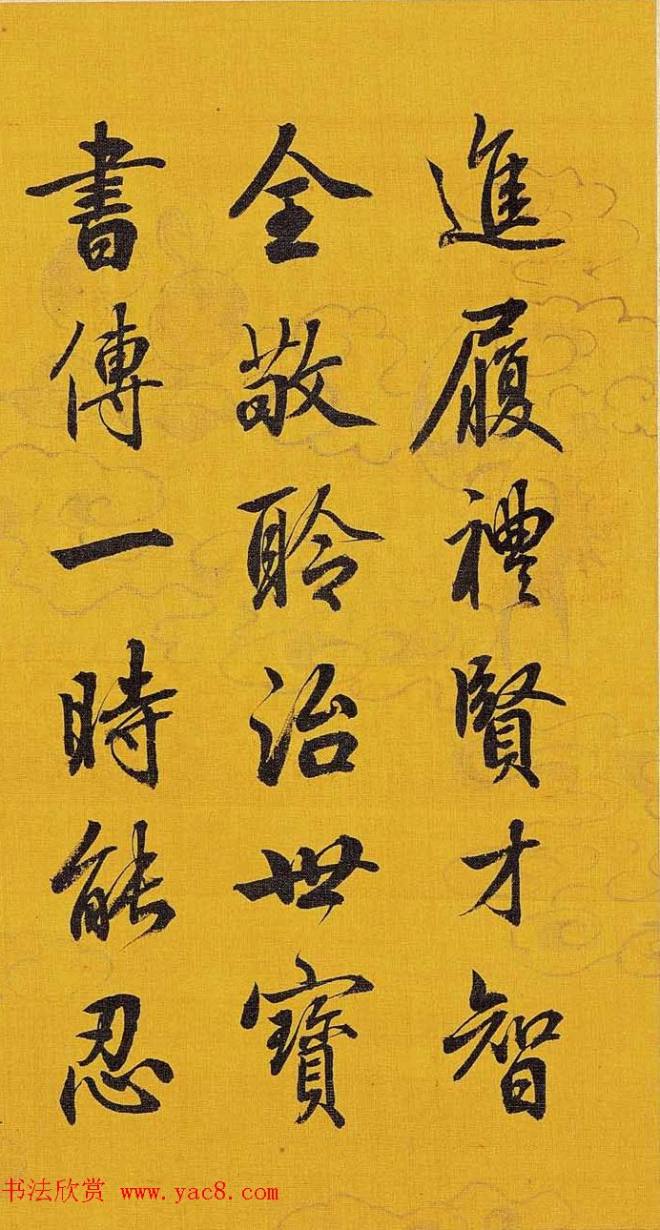 進履禮賢才智
全敬聆治世寶
書傳一時能忍
书法欣赏 www.yac8.com